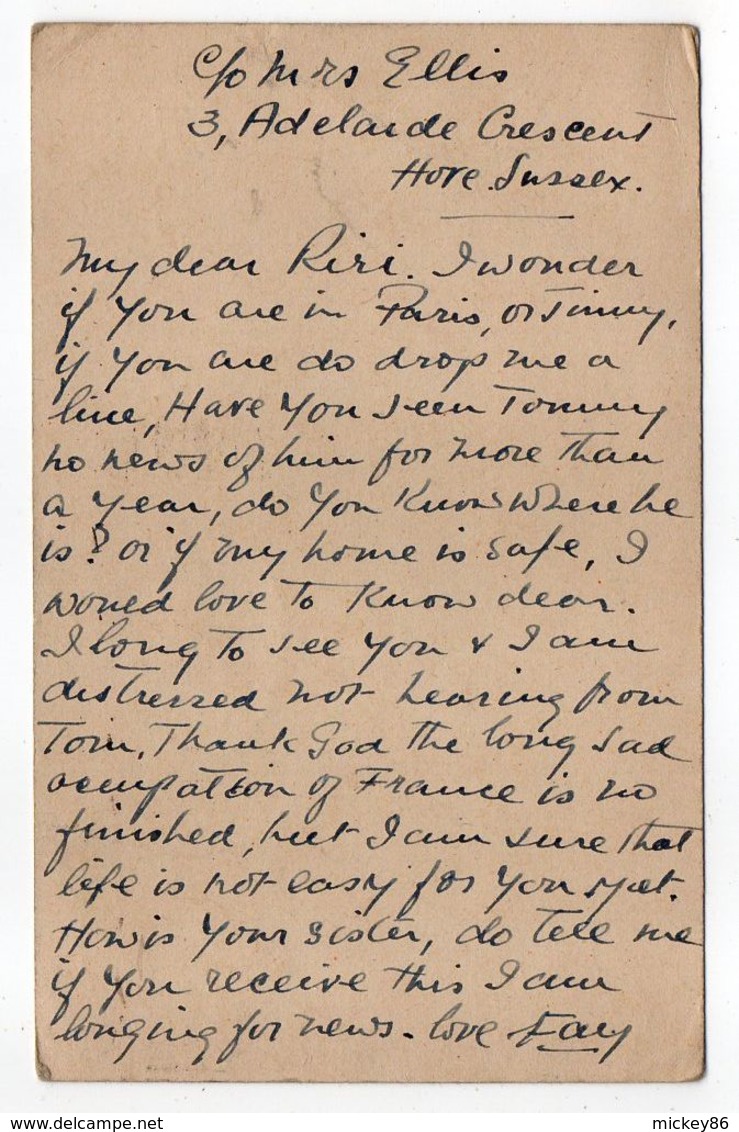 c/o Mrs Ellis
3, Adelaide Crescent
Hove. Sussex.
My dear Riri. I wonder
if you are in Paris, or Jinny,
if you are do drop me a
line, Have you seen Tommy
no news of him for more than
a year, do you know where he
is? or if my home is safe, I
would love to know dear.
I long to see you & I am
distressed not hearing from
Tom. Thank God the long sad
ocupation of France is no
finished, but I am sure that
life is not easy for you yet.
How is your sister, do tell me
if you receive this I am
longing for news. love Fay
www.delcampe.net
mickey86